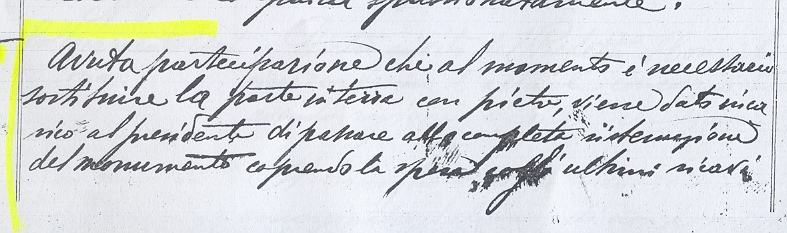 parla spassionatamente.
Avuta partecipazione che al momento è necessario
sostituire la parte in terra con pietre, viene dato inca
rico al presidente di passare alla completa sistemazione
del monumento coprendo la spesa cogli ultimi ricavi